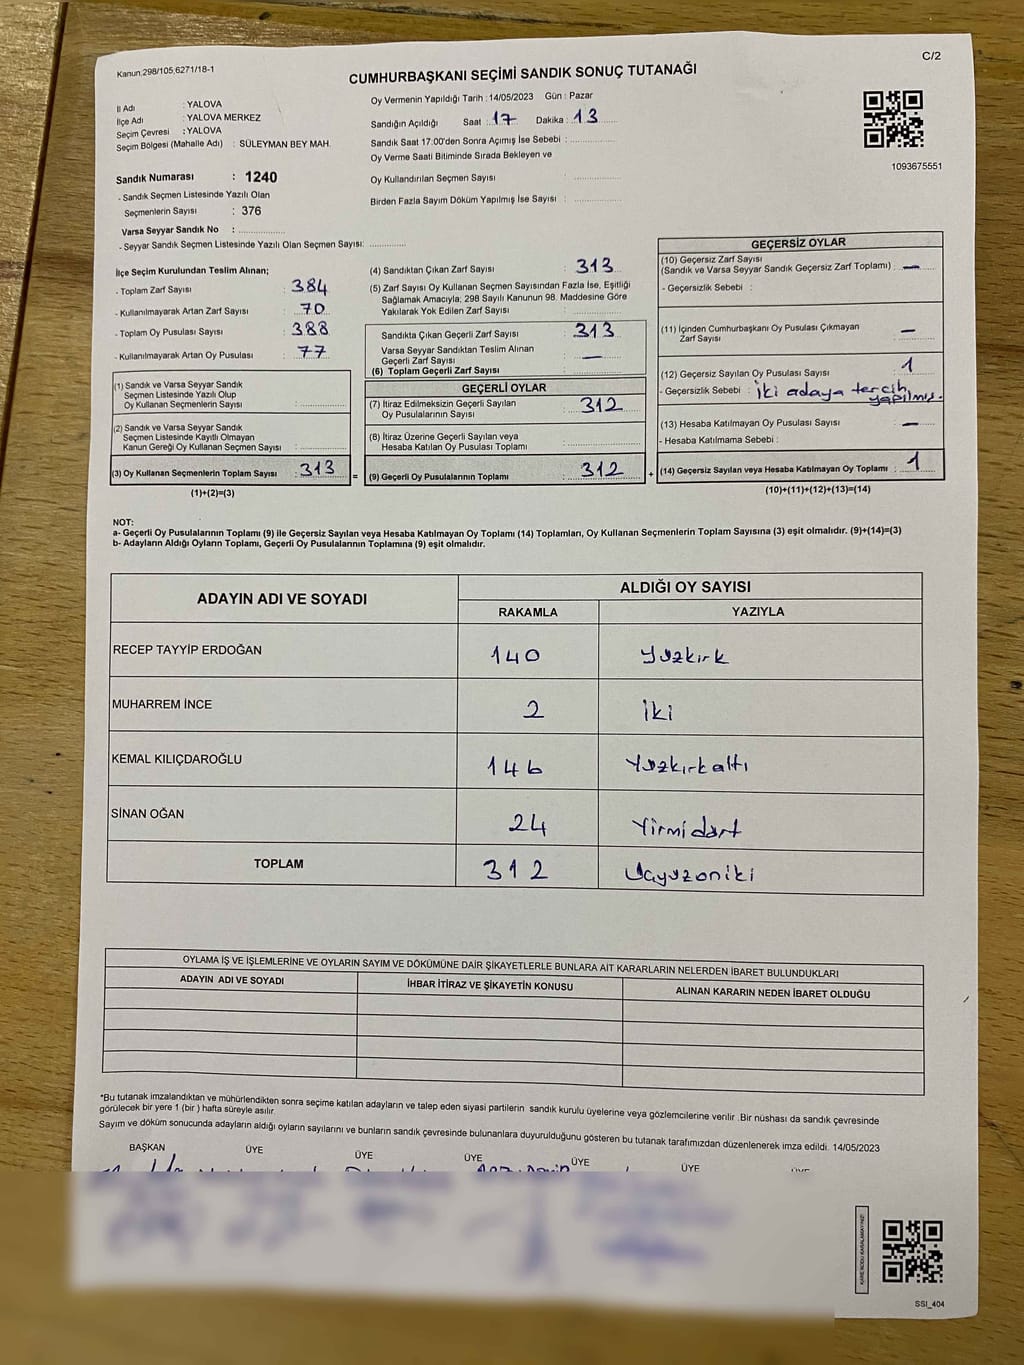 C/2
Kanun:298/105,6271/18-1
CUMHURBAŞKANI SEÇİMİ SANDIK SONUÇ TUTANAĞI
İl Adı : YALOVA
İlçe Adı : YALOVA MERKEZ
Seçim Çevresi : YALOVA
Seçim Bölgesi (Mahalle Adı) : SÜLEYMAN BEY MAH.
Sandık Numarası : 1240
- Sandık Seçmen Listesinde Yazılı Olan
Seçmenlerin Sayısı : 376
Varsa Seyyar Sandık No : ..............
- Seyyar Sandık Seçmen Listesinde Yazılı Olan Seçmen Sayısı: ............
Oy Vermenin Yapıldığı Tarih :14/05/2023 Gün : Pazar
Sandığın Açıldığı Saat : 17 Dakika : 13
Sandık Saat 17:00'den Sonra Açımış İse Sebebi : ..............
Oy Verme Saati Bitiminde Sırada Bekleyen ve
Oy Kullandırılan Seçmen Sayısı : ..............
Birden Fazla Sayım Döküm Yapılmış İse Sayısı : ..............
1093675551
İlçe Seçim Kurulundan Teslim Alınan;
- Toplam Zarf Sayısı : 384
- Kullanılmayarak Artan Zarf Sayısı : 70
- Toplam Oy Pusulası Sayısı : 388
- Kullanılmayarak Artan Oy Pusulası : 77
(1) Sandık ve Varsa Seyyar Sandık
Seçmen Listesinde Yazılı Olup
Oy Kullanan Seçmenlerin Sayısı : ..............
(2) Sandık ve Varsa Seyyar Sandık
Seçmen Listesinde Kayıtlı Olmayan
Kanun Gereği Oy Kullanan Seçmen Sayısı : ..............
(3) Oy Kullanan Seçmenlerin Toplam Sayısı : 313 =
(1)+(2)=(3)
(4) Sandıktan Çıkan Zarf Sayısı : 313
(5) Zarf Sayısı Oy Kullanan Seçmen Sayısından Fazla İse, Eşitliği
Sağlamak Amacıyla; 298 Sayılı Kanunun 98. Maddesine Göre
Yakılarak Yok Edilen Zarf Sayısı : ..............
Sandıkta Çıkan Geçerli Zarf Sayısı : 313
Varsa Seyyar Sandıktan Teslim Alınan
Geçerli Zarf Sayısı : —
(6) Toplam Geçerli Zarf Sayısı : ..............
GEÇERLİ OYLAR
(7) İtiraz Edilmeksizin Geçerli Sayılan
Oy Pusulalarının Sayısı : 312
(8) İtiraz Üzerine Geçerli Sayılan veya
Hesaba Katılan Oy Pusulası Toplamı : ..............
(9) Geçerli Oy Pusulalarının Toplamı : 312 +
GEÇERSİZ OYLAR
(10) Geçersiz Zarf Sayısı
(Sandık ve Varsa Seyyar Sandık Geçersiz Zarf Toplamı) : —
- Geçersizlik Sebebi :
(11) İçinden Cumhurbaşkanı Oy Pusulası Çıkmayan
Zarf Sayısı : —
(12) Geçersiz Sayılan Oy Pusulası Sayısı : 1
- Geçersizlik Sebebi : İki adaya tercih
yapılmış.
(13) Hesaba Katılmayan Oy Pusulası Sayısı : —
- Hesaba Katılmama Sebebi :
(14) Geçersiz Sayılan veya Hesaba Katılmayan Oy Toplamı : 1
(10)+(11)+(12)+(13)=(14)
NOT:
a- Geçerli Oy Pusulalarının Toplamı (9) ile Geçersiz Sayılan veya Hesap Katılmayan Oy Toplamı (14) Toplamları, Oy Kullanan Seçmenlerin Toplam Sayısına (3) eşit olmalıdır. (9)+(14)=(3)
b- Adayların Aldığı Oyların Toplamı, Geçerli Oy Pusulalarının Toplamına (9) eşit olmalıdır.
ADAYIN ADI VE SOYADI ALDIĞI OY SAYISI
RAKAMLA YAZIYLA
RECEP TAYYİP ERDOĞAN 140 Yüzkırk
MUHARREM İNCE 2 İki
KEMAL KILIÇDAROĞLU 146 Yüzkırkaltı
SİNAN OĞAN 24 Yirmidört
TOPLAM 312 Üçyüzoniki
OYLAMA İŞ VE İŞLEMLERİNE VE OYLARIN SAYIM VE DÖKÜMÜNE DAİR ŞİKAYETLERLE BUNLARA AİT KARARLARIN NELERDEN İBARET BULUNDUKLARI
ADAYIN ADI VE SOYADI İHBAR İTİRAZ VE ŞİKAYETİN KONUSU ALINAN KARARIN NEDEN İBARET OLDUĞU
*Bu tutanak imzalandıktan ve mühürlendikten sonra seçime katılan adayların ve talep eden siyasi partilerin sandık kurulu üyelerine veya gözlemcilerine verilir .Bir nüshası da sandık çevresinde
görülecek bir yere 1 (bir ) hafta süreyle asılır.
Sayım ve döküm sonucunda adayların aldığı oyların sayılarını ve bunların sandık çevresinde bulunanlara duyurulduğunu gösteren bu tutanak tarafımızdan düzenlenerek imza edildi. 14/05/2023
BAŞKAN ÜYE ÜYE ÜYE ÜYE ÜYE
KARE KODU KARALAMAYINIZ!
SSI_404